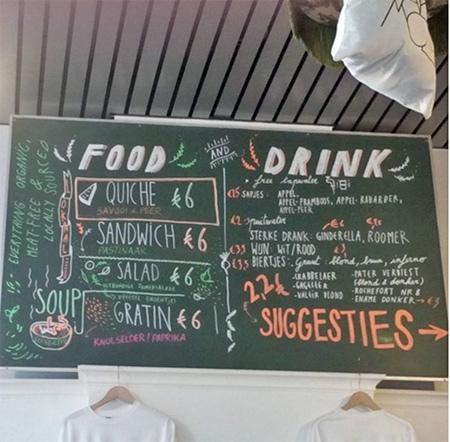 FOOD
AND
DRINK
EVERYTHING ORGANIC,
MEAT-FREE &
LOCALLY SOURCED
QUICHE €6
SAVOOI & PEER
SANDWICH €6
PASTINAAK
SALAD €6
SOUP
GRATIN €6
KNOLSELDER / PAPRIKA
free tapwater
SAPJES: APPEL,
APPEL-FRAMBOOS, APPEL-RABARBER,
APPEL-PEER
€2 spuitwater
STERKE DRANK: GINDERELLA, ROOMER
WIJN: WIT/ROOD
BIERTJES: Gauut blond, bruin, inferno
GAGELEER
VALEIR BLOND
PATER VERLEST
(blond & donker)
ROCHEFORT NR 8
ENAME DONKER → €3
SUGGESTIES →